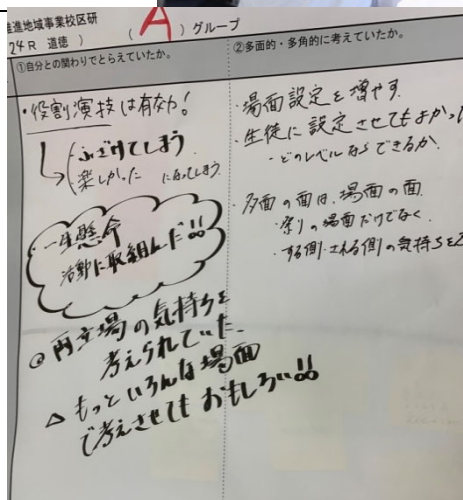 推進地域事業校区研
24R 道徳 ) ( A ) グループ
①自分との関わりでとらえていたか。
・役割演技は有効!
ふざけてしまう
楽しかった になってしまう
・一生懸命
活動に取組んだ!!
◎両立場の気持ちを
考えられていた。
△もっといろんな場面
で考えさせてもおもしろい!!
②多面的・多角的に考えていたか。
・場面設定を増やす
・生徒に設定させてもよかった
・どのレベルならできるか
・多面の面は、場面の面
・祭りの場面だけでなく
・する側・される側の気持ちを